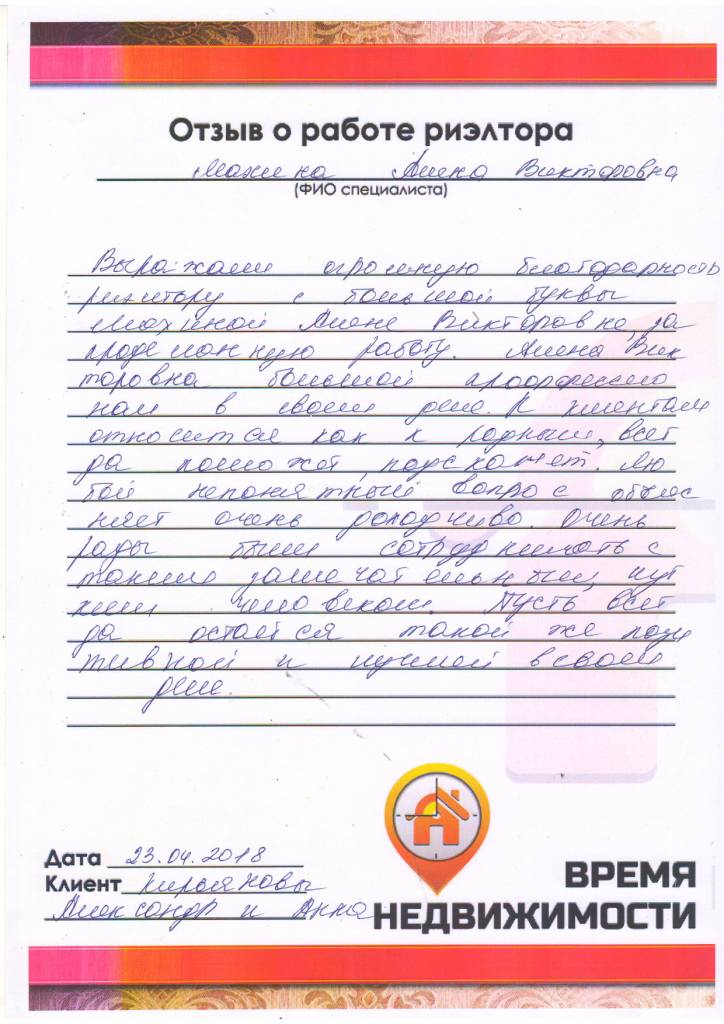 Отзыв о работе риэлтора
Махина Алена Викторовна
(ФИО специалиста)
Выражаем огромную благодарность
риэлтору с большой буквы
Махиной Алене Викторовне, за
проделанную работу. Алена Вик
торовна большой профессио
нал в своем деле. К клиентам
относится как к родным, всег
да поможет, подскажет. Лю
бой непонятный вопрос объяс
няет очень доходчиво. Очень
рады были сотрудничать с
таким замечательным, чут
ким человеком. Пусть всег
да остается такой же пози
тивной и лучшей в своем
деле.
Дата 23.04.2018
Клиент
Александр и Анна
ВРЕМЯ
НЕДВИЖИМОСТИ